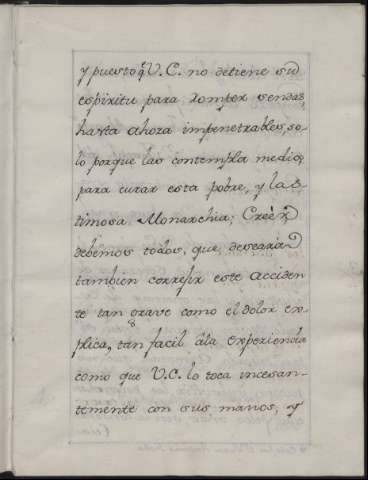 y puesto q̃ V.C. no detiene su
espiritu para romper sendas
hasta ahora impenetrables, so-
lo porque las contempla medios
para curar esta pobre, y las-
timosa Monarchia; Creèr
debemos todos, que deseará
tambien corregir este acciden
te tan grave como el dolor ex-
plica, tan facil â la experiencia
como que V.C. lo toca incesan-
temente con sus manos, y